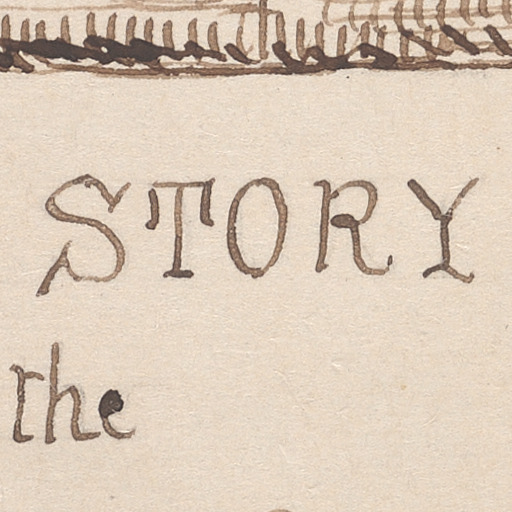 STORY
the